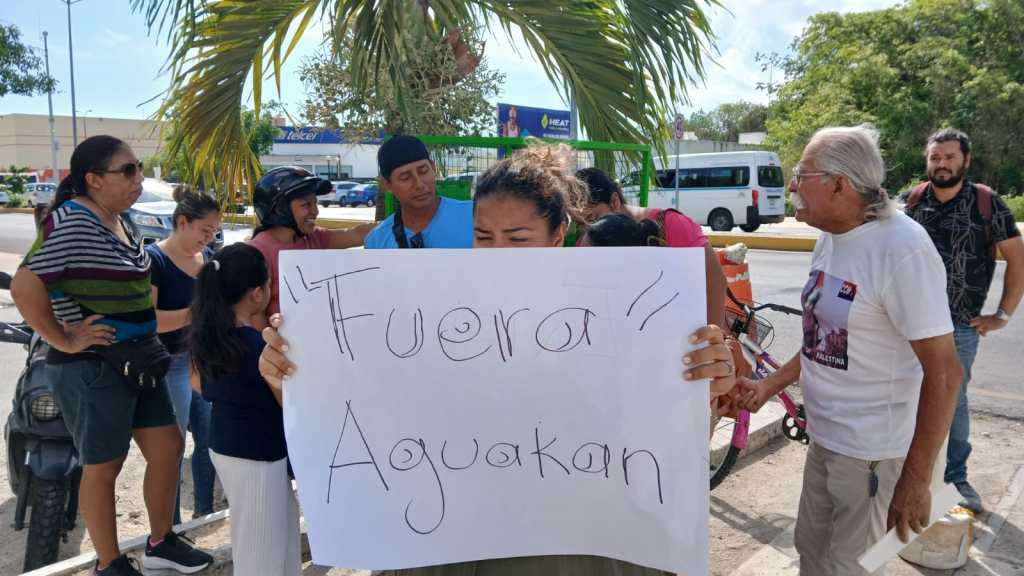 telcel
HEAT
"Fuera"
Aguakan
PALESTINA